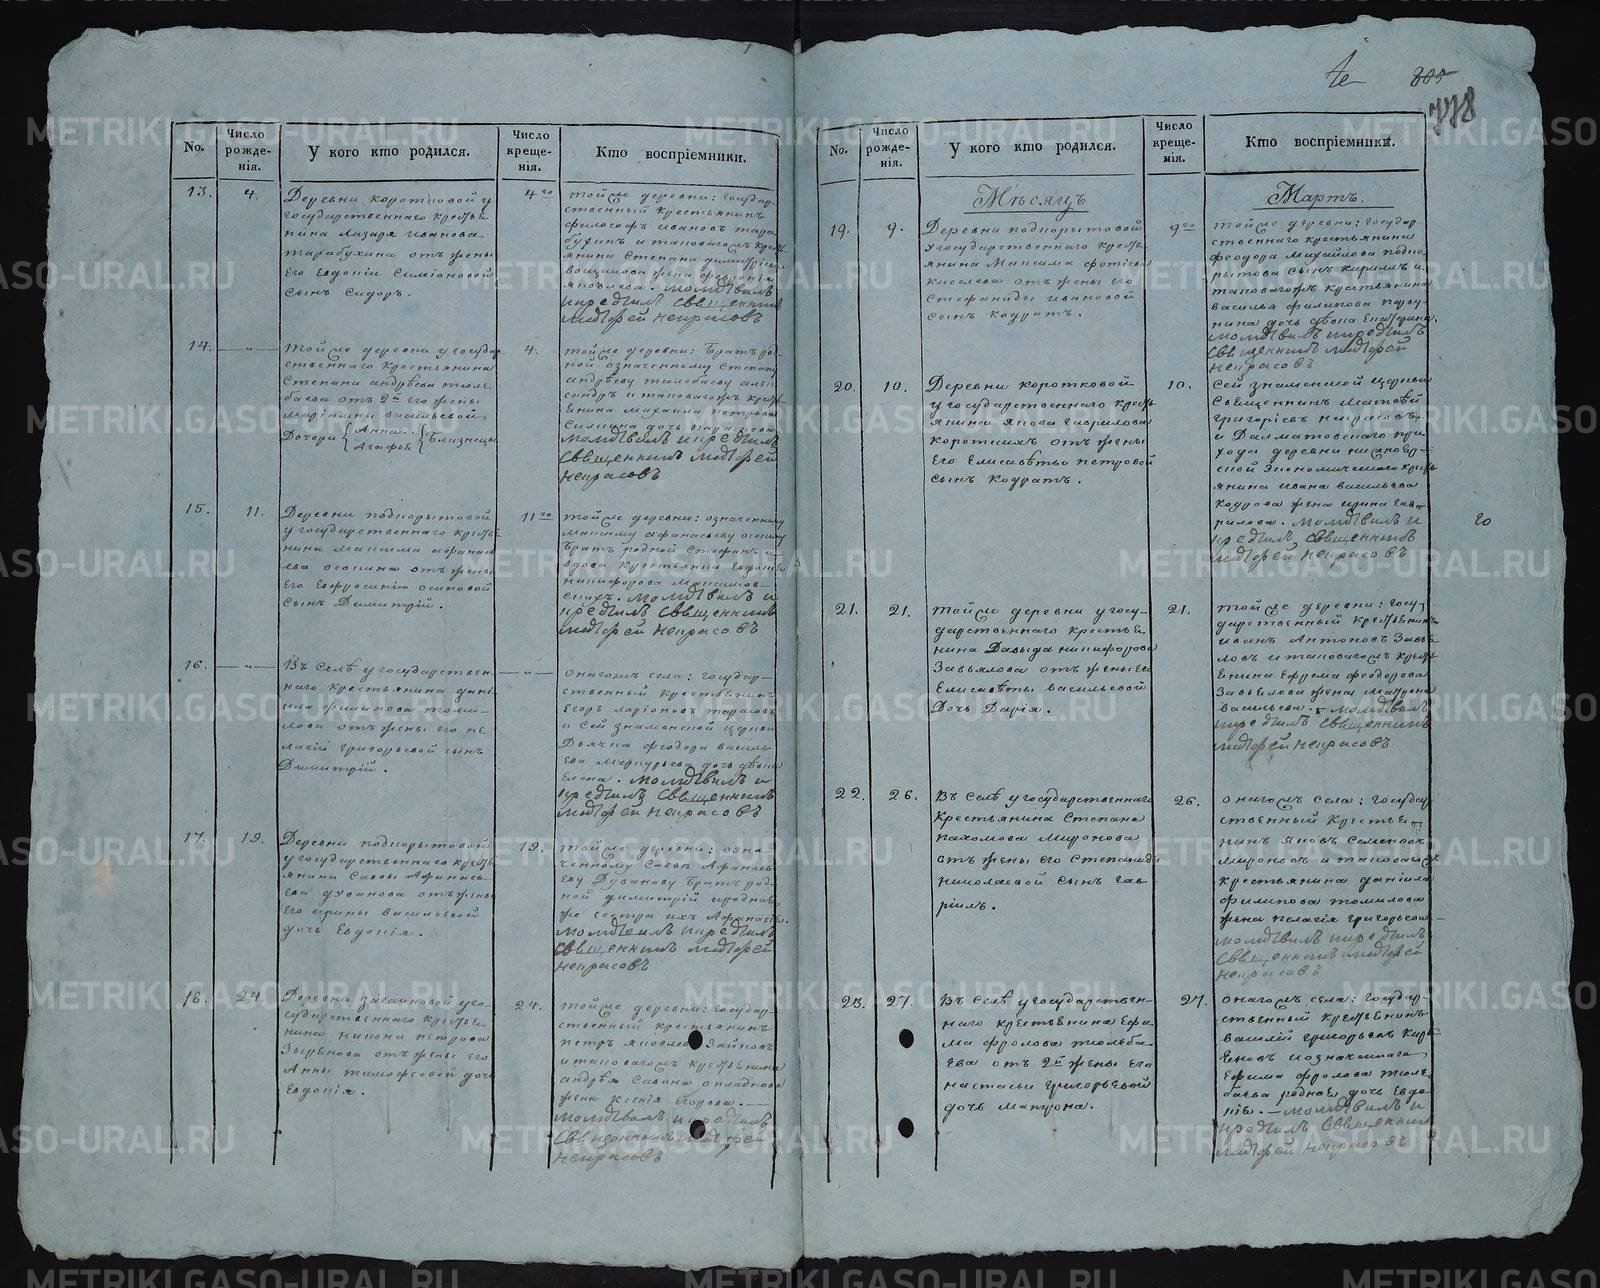 805
778
No.
Число рожденія.
У кого кто родился.
Число крещенія.
Кто воспріемники.
13.
4.
Деревни коротковой у
государственнаго крестья
нина Лазаря Иванова
Тарабухина отъ жены
Его Евдокіи Симіоновой
Сынъ Сидоръ.
4го
тойже деревни: государ-
ственный крестьянинъ
философъ Ивановъ Тара
бухинъ и таковагожъ крест
янина Степана Димитріева
жена Февронія
Яковлева. молитвилъ
и крестилъ Священникъ
Матфей Некрасовъ
14.
тойже деревни у государ
ственнаго крестьянина
Степана Андрѣева Тюле
баева отъ 2й Его жены
Маріамны Васильевой
Дочери { Анна. Агафья } Близнецы
4.
тойже деревни: Братъ род-
ной означенному Степану
Андрѣеву Тюлебаеву Алек
сандръ и таковагожъ крест
янина Михаила Петрова
дочь Параскева
молитвилъ и крестилъ
Священникъ Матфей
Некрасовъ
15.
11.
Деревни подкорытовой
у государственнаго кресть
янина Максима Афанась
ева Осокина отъ жены
Его Евфросиніи Осиповой
Сынъ Димитрій.
11го
тойже деревни: означенному
Максиму Афанасьеву Осокину
Братъ родной Стефанъ и
вдова крестьянка Евдокія
Никифорова Максимов-
скихъ. молитвилъ и
крестилъ Священникъ
Матфей Некрасовъ
16.
Въ Селѣ у государствен-
наго крестьянина Дані-
ила Филипова Томи-
лова отъ жены его Пе
лагіи Григорьевой сынъ
Димитрій.
онагожъ села: государ-
ственный крестьянинъ
Егоръ Ларіоновъ Тарасовъ
и Сей знаменской церкви
Дьячка Феодора Василь
ева Меркурьева дочь дѣвка
Елена. молитвилъ и
крестилъ Священникъ
Матфей Некрасовъ
17.
19.
Деревни подкорытовой
у государственнаго кресть
янина Саввы Афанась
ева Дуванова отъ жены
Его Ирины Васильевой
дочь Евдокія.
19.
тойже деревни: озна-
ченному Саввѣ Афанась
еву Дуванову Братъ род-
ной Димитрій и родная
же сестра ихъ Афанасія.
молитвилъ и крестилъ
Священникъ Матфей
Некрасовъ
18.
24.
Деревни засыпковой у го-
сударственнаго крестья
нина Никона Петрова
Зырянова отъ жены его
Анны Тимофеевой дочь
Евдокія.
24.
тойже деревни: государ-
ственный крестьянинъ
Петръ Яковлевъ Зайковъ
и таковагожъ крестьянина
Андрея Савина Оплаткова
жена Ксенія Егорова.
молитвилъ и крестилъ
Священникъ Матфей
Некрасовъ
No.
Число рожденія.
У кого кто родился.
Число крещенія.
Кто воспріемники.
Мѣсяцъ Мартъ.
19.
9.
Деревни подкорытовой
у государственнаго кресть
янина Максима Фотіева
Киселева отъ жены его
Стефаниды Ивановой
сынъ Кодратъ.
9го
тойже деревни: государ
ственнаго крестьянина
Феодора Михайлова Подко
рытова сынъ Кирилъ и
таковагожъ крестьянина
Василья Филипова
дочь дѣвка Екатерина.
молитвилъ и крестилъ
Священникъ Матфей
Некрасовъ
20.
10.
Деревни коротковой
у государственнаго кресть
янина Якова Гаврилова
Короткихъ отъ жены
Его Елисаветы Петровой
сынъ Кодратъ.
10.
Сей знаменской церкви
Священникъ Матѳей
Григоріевъ Некрасовъ
и Далматовскаго при
хода деревни
экономическаго кресть
янина Ивана Васильева
Кодрова жена Ирина Гав-
рилова. молитвилъ и
крестилъ Священникъ
Матфей Некрасовъ
20
21.
21.
тойже деревни у госу-
дарственнаго крестья
нина Давыда Никифорова
Завьялова отъ жены его
Елисаветы Васильевой
дочь Дарія.
21.
тойже деревни: госу-
дарственный крестьянинъ
Иванъ Антоновъ Завья
ловъ и таковагожъ кресть
янина Ефрема Феодорова
Завьялова жена Матрона
Васильева. молитвилъ
и крестилъ Священникъ
Матфей Некрасовъ
22.
26.
Въ Селѣ у государственнаго
крестьянина Степана
Пахомова Миронова
отъ жены его Степаниды
Николаевой сынъ Гав-
ріилъ.
26.
онагожъ села: государ
ственный крестья-
нинъ Яковъ Семеновъ
Мироновъ и таковагожъ
крестьянина Даніила
Филипова Томилова
жена Пелагія Григорьева
молитвилъ и крестилъ
Священникъ Матфей
Некрасовъ
23.
27.
Въ Селѣ у государствен-
наго крестьянина Ефи-
ма Фролова Тюлеба-
ева отъ 2й жены его
Настасьи Григорьевой
дочь Матрона.
27.
онагожъ села: государ-
ственный крестьянинъ
Василій Григорьевъ Кирь
яновъ и означеннаго
Ефима Фролова Тюле
баева родная дочь Евдо-
кія. молитвилъ и
крестилъ Священникъ
Матфей Некрасовъ
METRIKI.GASO-URAL.RU